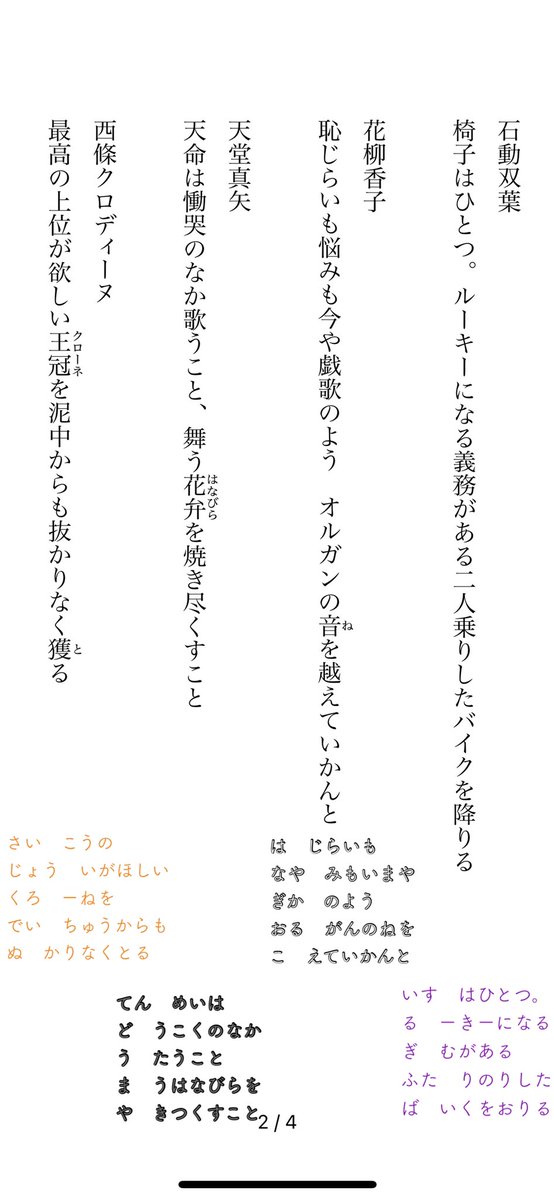 石動双葉
椅子はひとつ。ルーキーになる義務がある二人乗りしたバイクを降りる
花柳香子
恥じらいも悩みも今や戯歌のよう　オルガンの音を越えていかんと
ね
天堂真矢
天命は慟哭のなか歌うこと、舞う花弁を焼き尽くすこと
はなびら
西條クロディーヌ
最高の上位が欲しい王冠を泥中からも抜かりなく獲る
クローネ
と
いす　はひとつ。
る　ーきーになる
ぎ　むがある
ふた　りのりした
ば　いくをおりる
は　じらいも
なや　みもいまや
ぎか　のよう
おる　がんのねを
こ　えていかんと
てん　めいは
ど　うこくのなか
う　たうこと
ま　うはなびらを
や　きつくすこと
さい　こうの
じょう　いがほしい
くろ　ーねを
でい　ちゅうからも
ぬ　かりなくとる
2 / 4